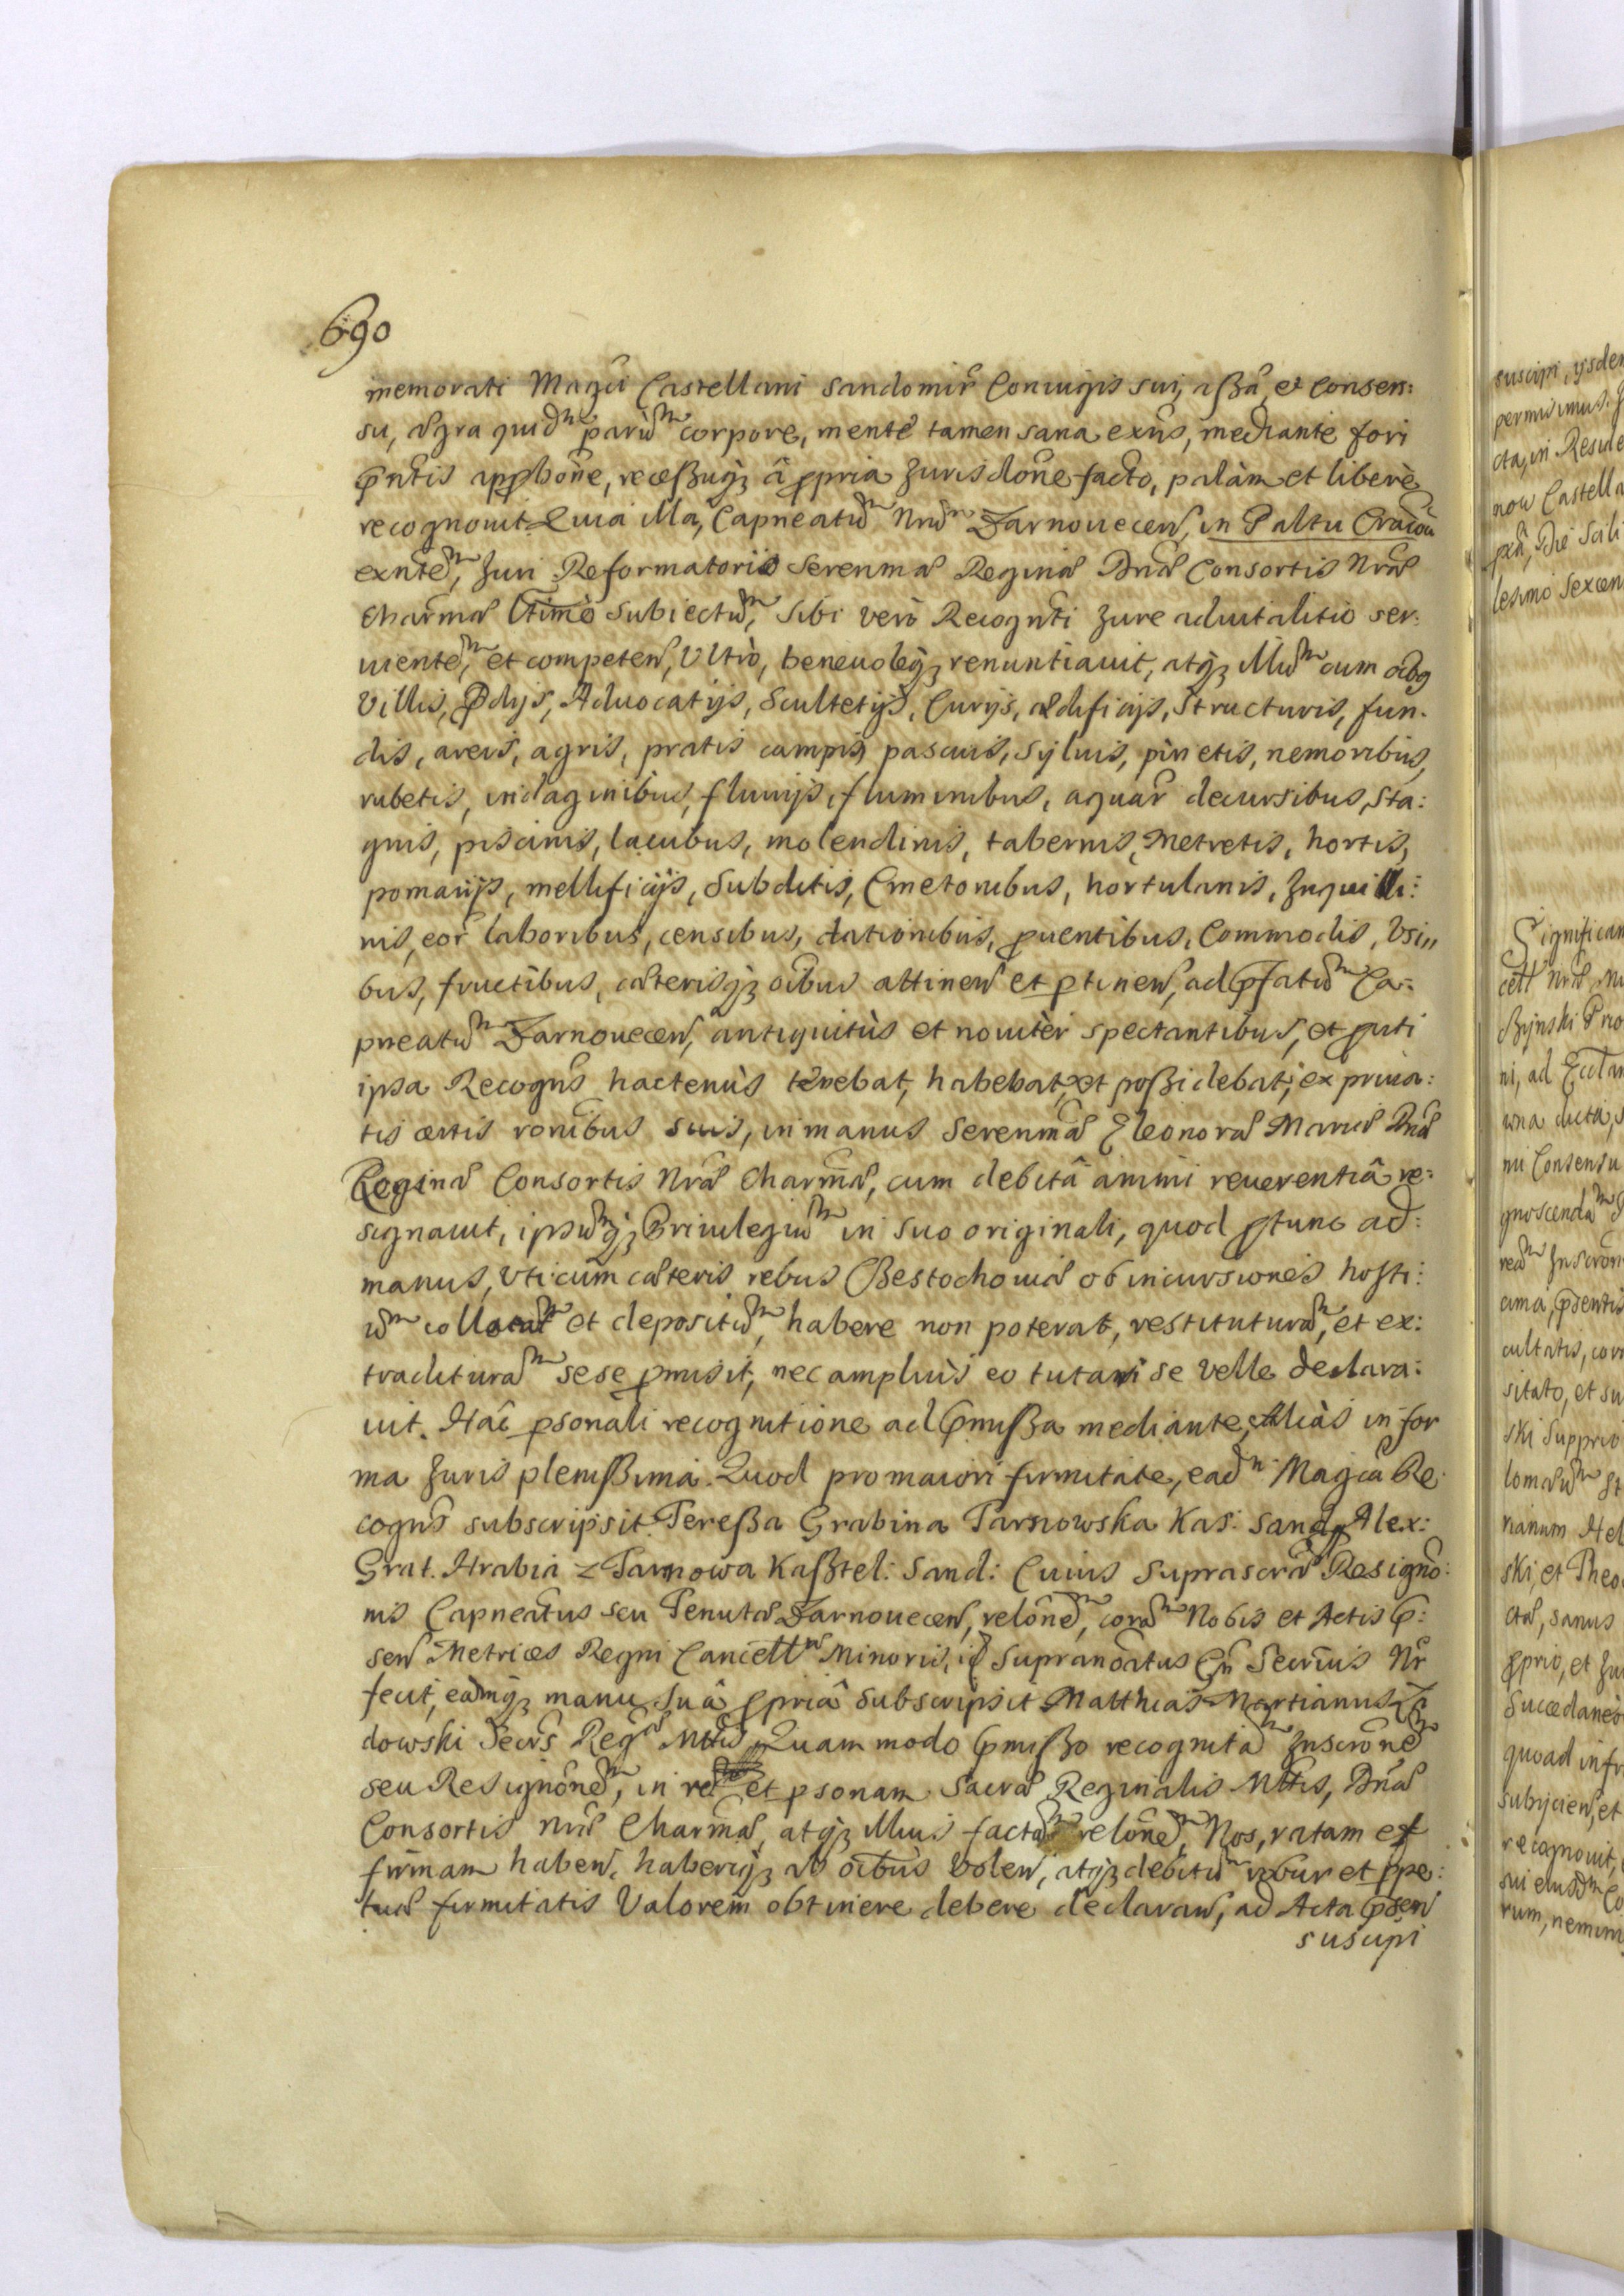 690
memorati Magci Castellani Sandomir Coniugis sui, aßa, et consen:
su, ægra quid parum corpore, mente tamen sana exns, mediante fori
pntis apphone, receßuq₃ â ppria Jurisdone facto, palàm et liberè
recognouit. Quia illa, Capneatum Nrum Zarnouecen, in Paltu Cracou
exntem, Juri Reformatorio Serenmæ Reginæ Dnæ Consortis Nræ
Charmæ ltimè subiectum, sibi verò Recognti Jure aduitalitio ser:
uientem, et competen, Vltrò, beneuoleq₃ renuntiauit, atq₃ illum cum oibg
Villis, Pdijs, Aduocatijs, Scultetijs, Curijs, ædificijs, structuris, fun:
dis, areis, agris, pratis campis, pascuis, syluis, pinetis, nemoribus,
rubetis, indaginibus, fluuijs, fluminibus, aquar decursibus, sta:
gnis, piscinis, lacubus, molendinis, tabernis, Metretis, hortis,
pomarijs, mellificijs, Subditis, Cmetonibus, hortulanis, Inquili:
nis, eor laboribus, censibus, dationibus, puentibus, Commodis, Vsi„
bus, fructibus, cæterisq₃ oibus attinen et ptinen, ad pfatum Ca:
pneatum Zarnouecen, antiquitùs et nouitèr spectantibus, et prti
ipsa Recogns hactenùs tenebat, habebat, et poßidebat; ex priua:
tis certis ronibus suis, in manus Serenmæ Eleonoræ Mariæ Dnæ
Reginæ Consortis Nræ Charmæ, cum debitâ animi reuerentiâ re:
signauit, ipsumq₃ Priuilegium in suo originali, quod ptunc ad
manus, vti cum cæteris rebus Czestochouiæ ob incursiones hosti:
um collocat et depositum, habere non poterat, restituturam, et ex:
tradituram sese pmisit, nec ampliùs eo tutari se velle declara:
uit. Hac psonali recognitione ad pmißa mediante, Aliàs in for
ma Juris plenißima. Quod pro maiori firmitate, ead Magca Re:
cogns subscripsit. Tereßa Grabina Tarnowska Kas: Sand, Alex:
Grat. Hrabia z Tarnowa Kaßtel: Sand: Cuius suprascræ Resigno:
nis Capneatus seu Tenutæ Zarnouecen, relonem, coram Nobis et Actis p:
sen Metrices Regni Cancell Minoris, id supranoatus Gn Secrius Nr
fecit, eamq₃ manu suâ ppriâ subscripsit Matthias Martianus Za
dowski Secrs Reg Mttis. Quam modo pmißo recognitam Inscronem
seu Resignonem, in rem et psonam Sacræ Reginalis Mttis, Dnæ
Consortis Nræ Charmæ, atq₃ illius factam relonem, Nos, ratam et
firmam haben, haberiq₃ ab oibus volen, atq₃ debitum robur et ppe:
tuæ firmitatis Valorem obtinere debere declaran, ad Acta psen
suscipi
suscipi, ysdem
permisimus.
cta, in Reside
now Castella
Die
lesimo sexcen
Significam
cell Nræ
ni, ad Eccla
cma dicta,
nu Consensu
gnoscenda
Inscron
cultatis,
sitato, et su
ski Supprio
nianum
ski, et Theo
sanus
pprio, et Ju
Succedanes
quoad infr
subijcien, et
recognouit,
sui eiusdm
rum, nemini